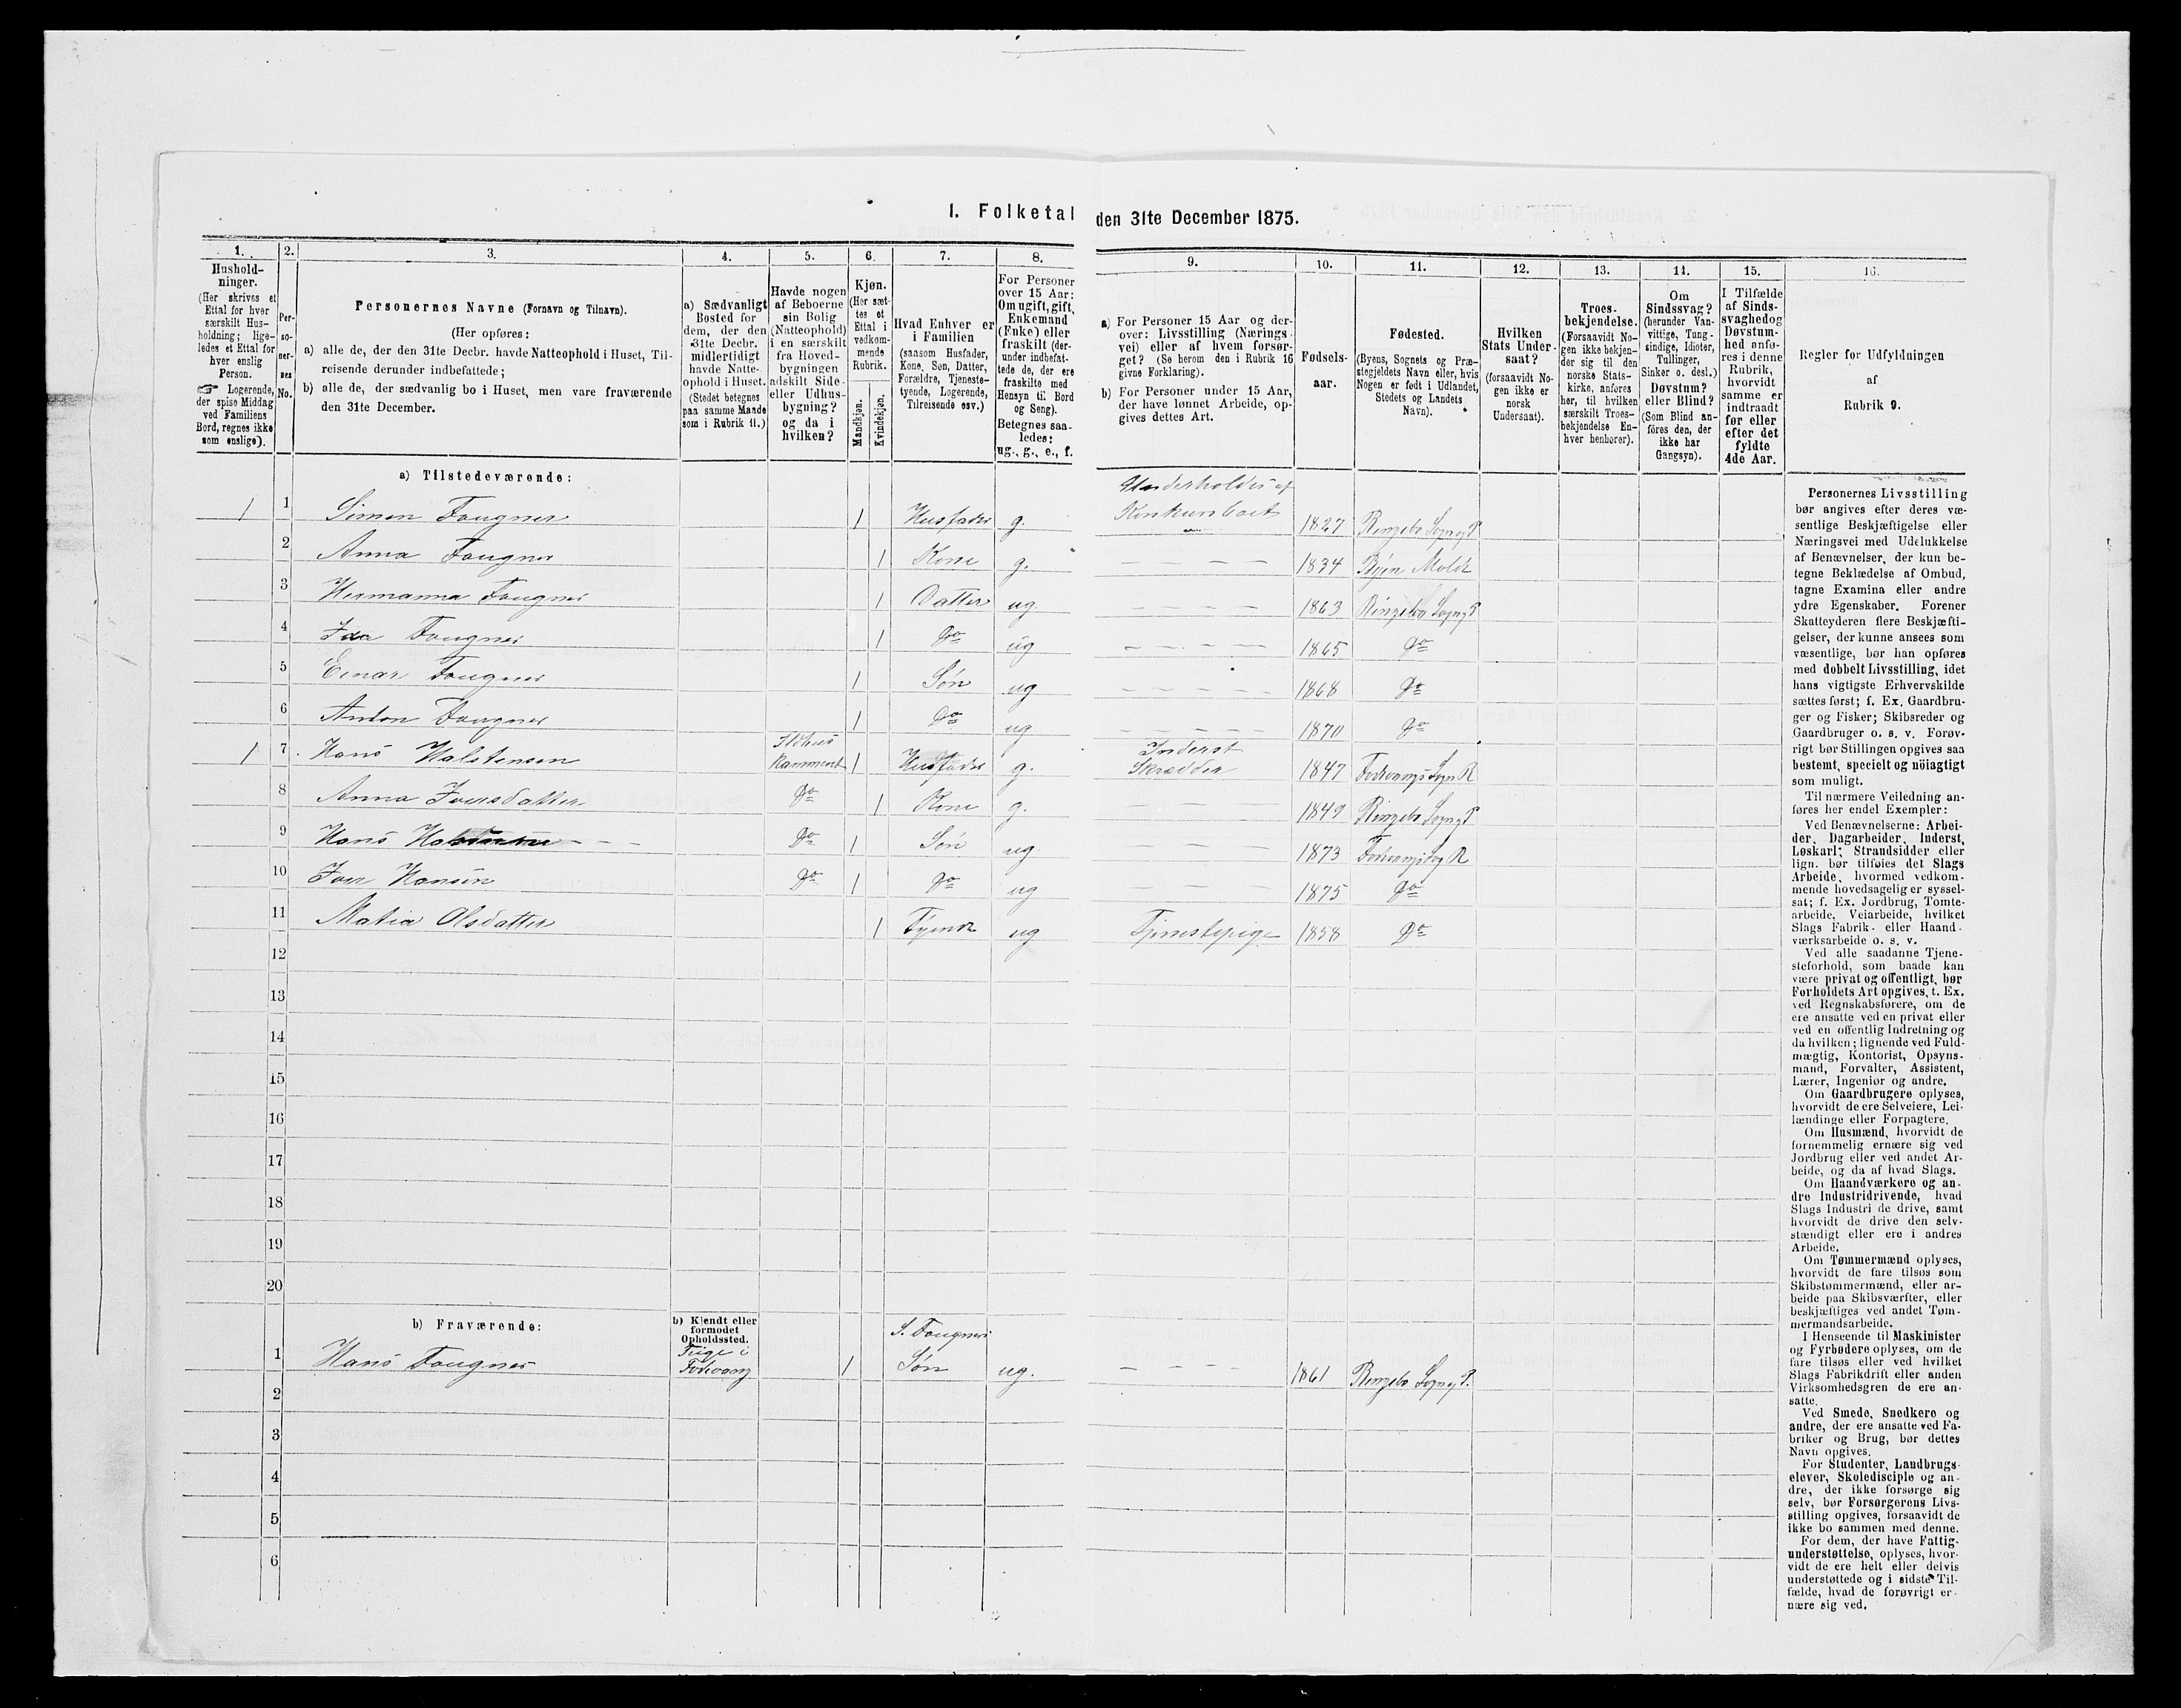 1. Folketal den 31te December 1875.
1.
Hushold-
ninger.
(Her skrives et
Ettal for hver
særskilt Hus-
holdning; lige-
ledes et Ettal for
hver enslig
Person.
☞ Logerende,
der spise Middag
ved Familiens
Bord, regnes ikke
som enslige).
2.
Per-
so-
ner-
nes
No.
3.
Personernes Navne (Fornavn og Tilnavn).
(Her opføres:
a) alle de, der den 31te Decbr. havde Natteophold i Huset, Til-
reisende derunder indbefattede;
b) alle de, der sædvanlig bo i Huset, men vare fraværende
den 31te December.
4.
a) Sædvanligt
Bosted for
dem, der den
31te Decbr.
midlertidigt
havde Natte-
ophold i Huset.
(Stedet betegnes
paa samme Maade
som i Rubrik 11.)
5.
Havde nogen
af Beboerne
sin Bolig
(Natteophold)
i en særskilt
fra Hoved-
bygningen
adskilt Side-
eller Udhus-
bygning?
og da i
hvilken?
6.
Kjøn.
(Her sæt-
tes et
Ettal i
vedkom-
mende
Rubrik.
Mandkjøn.
Kvindekjøn.
7.
Hvad Enhver er
i Familien
(saasom Husfader,
Kone, Søn, Datter,
Forældre, Tjeneste-
tyende, Logerende,
Tilreisende osv.)
8.
For Personer
over 15 Aar:
Om ugift, gift,
Enkemand
(Enke) eller
fraskilt (der-
under indbefat-
tede de, der ere
fraskilte med
Hensyn til Bord
og Seng).
Betegnes saa-
ledes:
ug., g., e., f.
9.
a) For Personer 15 Aar og der-
over: Livsstilling (Nærings-
vei) eller af hvem forsør-
get? (Se herom den i Rubrik 16
givne Forklaring).
b) For Personer under 15 Aar,
der have lønnet Arbeide, op-
gives dettes Art.
10.
Fødsels-
aar.
11.
Fødested.
(Byens, Sognets og Præ-
stegjeldets Navn eller, hvis
Nogen er født i Udlandet,
Stedets og Landets
Navn).
12.
Hvilken
Stats Under-
saat?
(forsaavidt No-
gen ikke er
norsk
Undersaat).
13.
Troes-
bekjendelse.
(Forsaavidt No-
gen ikke bekjen-
der sig til den
norske Stats-
kirke, anføres
her, til hvilken
særskilt Troes-
bekjendelse En-
hver henhører).
14.
Om
Sindssvag?
(herunder Van-
vittige, Tung-
sindige, Idioter,
Tullinger,
Sinker o. desl.)
Døvstum?
eller Blind?
(Som Blind an-
føres den, der
ikke har
Gangsyn).
15.
I Tilfælde
af Sinds-
svaghed og
Døvstum-
hed anfø-
res i denne
Rubrik,
hvorvidt
samme er
indtraadt
før eller
efter det
fyldte
4de Aar.
16.
Regler for Udfyldningen
af
Rubrik 9.
a) Tilstedeværende:
1 1 Simen Fougner 1 Husfader g. Underholdes af Konkursboet 1827 Ringebo Sogn og P
2 Anna Fougner 1 Kone g. — — — — 1834 Byen Molde
3 Hermanna Fougner 1 Datter ug. — — — — 1863 Ringebo Sogn og P
4 Ida Fougner 1 Do ug — — — — 1865 Do
5 Einar Fougner 1 Søn ug — — — — 1868 Do
6 Anton Fougner 1 Do ug — — — — 1870 Do
1 7 Hans Halstensen Ildhus Kammeret 1 Husfader g. Inderst Skrædder 1847 Fodvangs Sogn R
8 Anna Iversdatter Do 1 Kone g. — — 1849 Ringebo Sogn og P
9 Hans Do 1 Søn ug. — — — 1873 Fodvangs Sog R
10 Iver Hansen Do 1 Do ug — — — 1875 Do
11 Matia Olsdatter 1 Tyende ug Tjenestepige 1858 Do
12
13
14
15
16
17
18
19
20
b) Fraværende:
b) Kjendt eller
formodet
Opholdssted.
1 Hans Fougner Teige i Fodvang 1 S. Fougners Søn ug. — — — — 1861 Ringebo Sogn og P.
2
3
4
5
6
Personernes Livsstilling
bør angives efter deres væ-
sentlige Beskjæftigelse eller
Næringsvei med Udelukkelse
af Benævnelser, der kun be-
tegne Beklædelse af Ombud,
tagne Examina eller andre
ydre Egenskaber. Forener
Skatteyderen flere Beskjæfti-
gelser, der kunne ansees som
væsentlige, bør han opføres
med dobbelt Livsstilling, idet
hans vigtigste Erhvervskilde
sættes først; f. Ex. Gaardbru-
ger og Fisker; Skibsreder og
Gaardbruger o. s. v. Forøv-
rigt bør Stillingen opgives saa
bestemt, specielt og nöiagtigt
som muligt.
Til nærmere Veiledning an-
føres her endel Exempler:
Ved Benævnelserne: Arbei-
der, Dagarbeider, Inderst,
Løskarl, Strandsidder eller
lign. bør tilføies det Slags
Arbeide, hvormed vedkom-
mende hovedsagelig er syssel-
sat; f. Ex. Jordbrug, Tomte-
arbeide, Veiarbeide, hvilket
Slags Fabrik- eller Haand-
værksarbeide o. s. v.
Ved alle saadanne Tjene-
steforhold, som baade kan
være privat og offentligt, bør
Forholdets Art opgives, t. Ex.
ved Regnskabsførere, om de
ere ansatte ved en privat eller
ved en offentlig Indretning og
da hvilken; lignende ved Fuld-
mægtig, Kontorist, Opsyns-
mand, Forvalter, Assistent,
Lærer, Ingeniør og andre.
Om Gaardbrugere oplyses,
hvorvidt de ere Selveiere, Lei-
lændinge eller Forpagtere.
Om Husmænd, hvorvidt de
fornemmelig ernære sig ved
Jordbrug eller ved andet Ar-
beide, og da af hvad Slags.
Om Haandværkere og an-
dre Industridrivende, hvad
Slags Industri de drive, samt
hvorvidt de drive den selv-
stændigt eller ere i andres
Arbeide.
Om Tømmermænd oplyses,
hvorvidt de fare tilsøs som
Skibstømmermænd, eller ar-
beide paa Skibsværfter, eller
beskjæftiges ved andet Tøm-
mermandsarbeide.
I Henseende til Maskinister
og Fyrbødere oplyses, om de
fare tilsøs eller ved hvilket
Slags Fabrikdrift eller anden
Virksomhedsgren de ere an-
satte.
Ved Smede, Snedkere og
andre, der ere ansatte ved Fa-
briker og Brug, bør dettes
Navn opgives.
For Studenter, Landbrugs-
elever, Skoledisciple og an-
dre, der ikke forsørge sig
selv, bør Forsørgerens Livs-
stilling opgives, forsaavidt de
ikke bo sammen med denne.
For dem, der have Fattig-
understøttelse, oplyses, hvor-
vidt de ere helt eller delvis
understøttede og i sidste Til-
fælde, hvad de forøvrigt er-
nære sig ved.